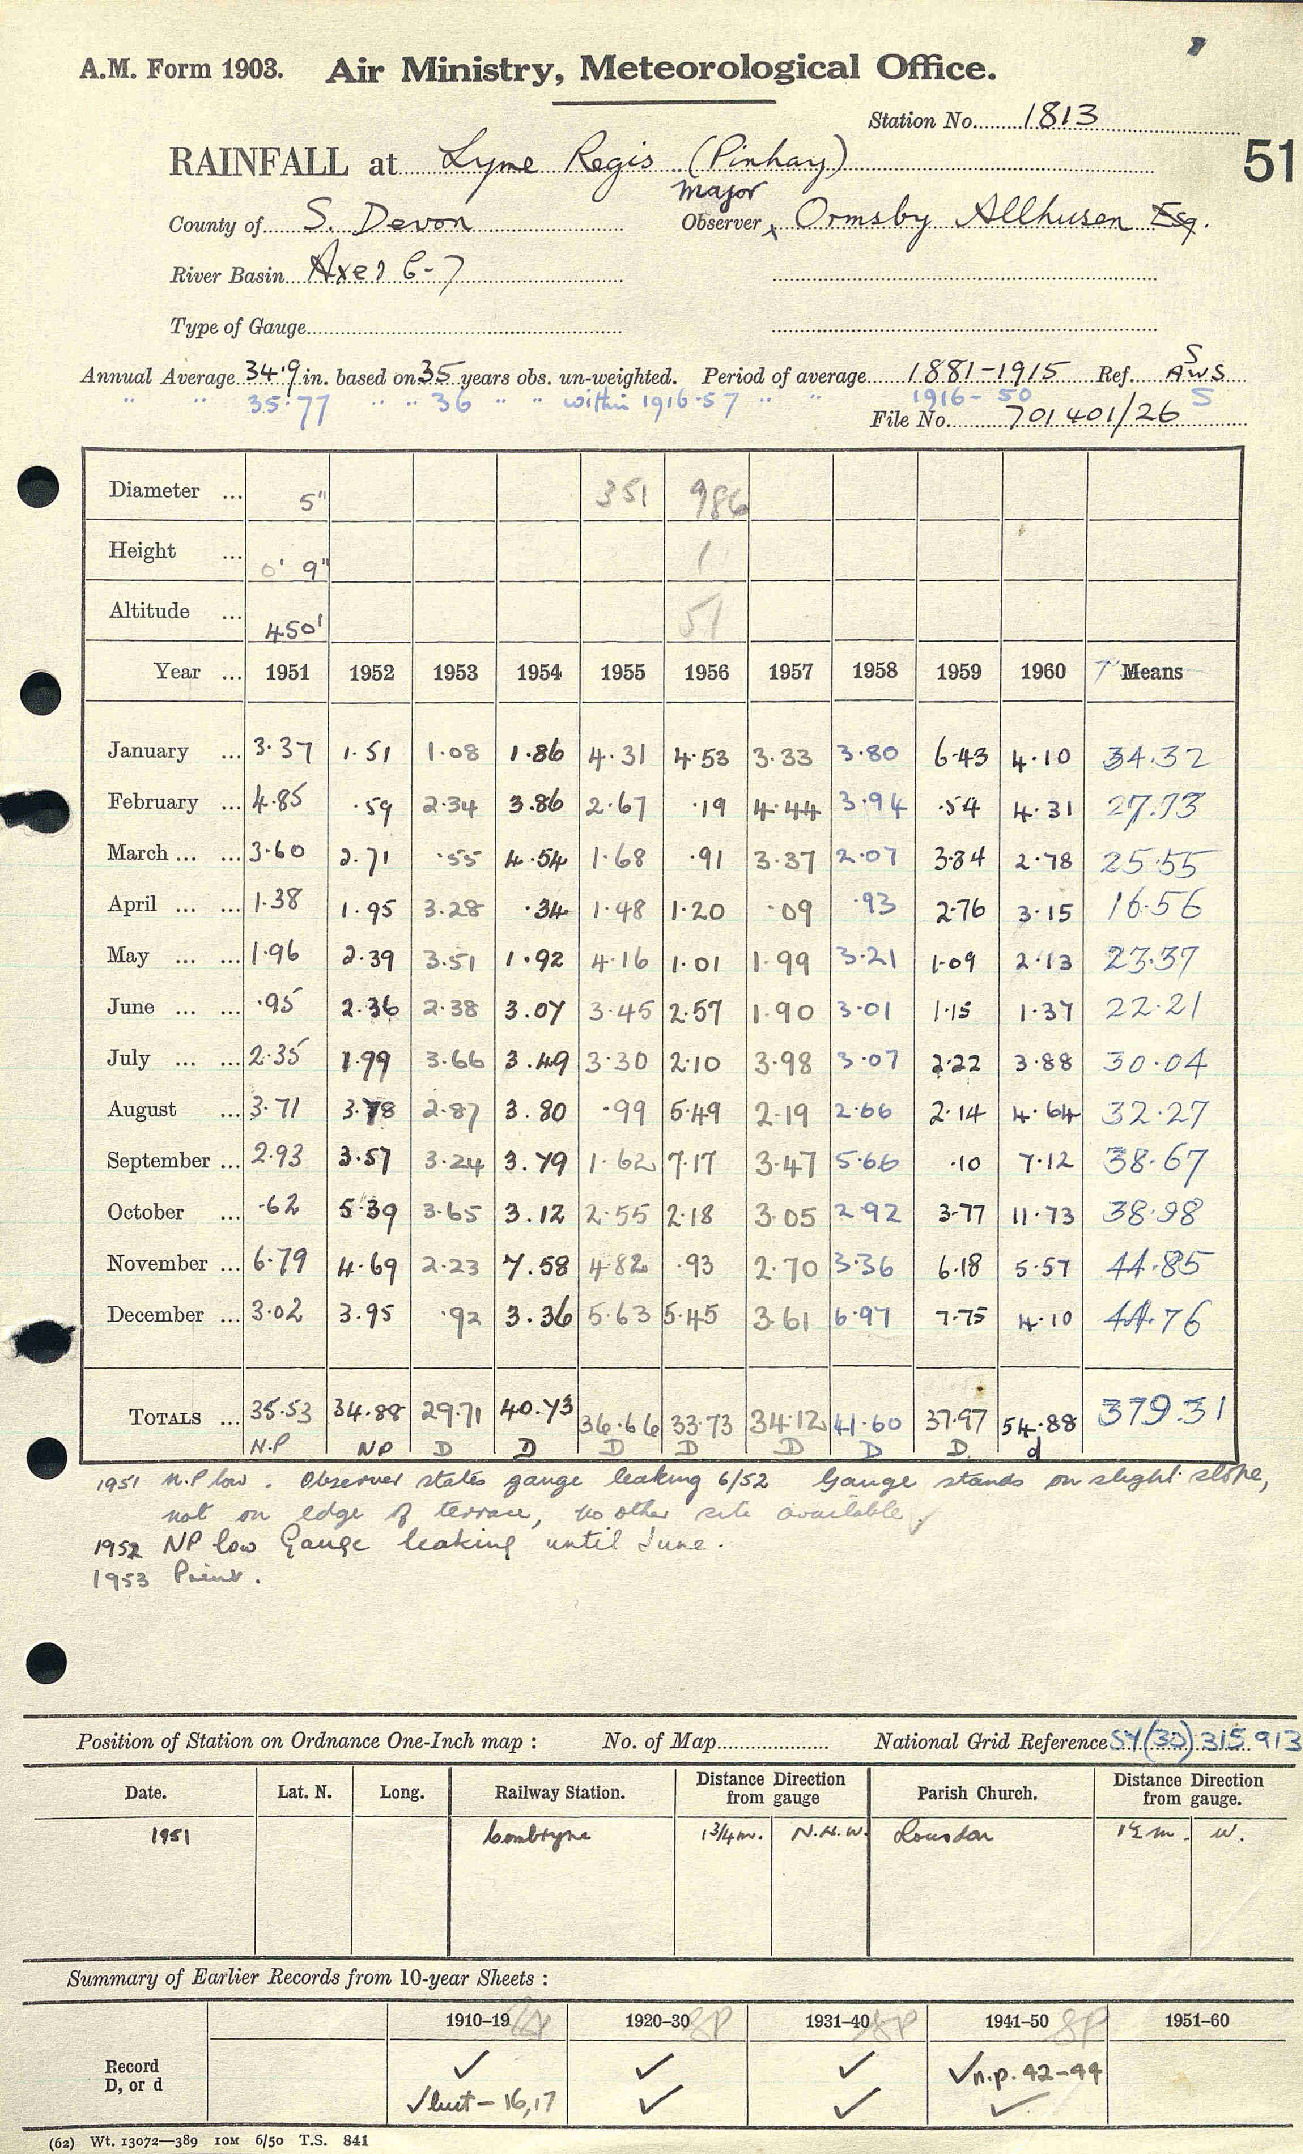 A.M. Form 1903. Air Ministry, Meteorological Office.
Station No. 1813
RAINFALL at Lyme Regis (Pinhay)
51
Major
County of S. Devon Observer Ormsby Allhusen Esq.
River Basin Axe 1 6-7
Type of Gauge
Annual Average 34.9 in. based on 35 years obs. un-weighted. Period of average 1881-1915 Ref. S AWS
" " 35.77 " " 36 " " within 1916-57 " " 1916-50 S
File No. 701401/26
Diameter ... 5" 351 986
Height ... 0' 9" 1
Altitude ... 450' 51
Year ... 1951 1952 1953 1954 1955 1956 1957 1958 1959 1960 T Means
January ... 3.37 1.51 1.08 1.86 4.31 4.53 3.33 3.80 6.43 4.10 34.32
February ... 4.85 .59 2.34 3.86 2.67 .19 4.44 3.94 .54 4.31 27.73
March ... ... 3.60 2.71 .55 4.54 1.68 .91 3.37 2.07 3.34 2.78 25.55
April ... ... 1.38 1.95 3.28 .34 1.48 1.20 .09 .93 2.76 3.15 16.56
May ... ... 1.96 2.39 3.51 1.92 4.16 1.01 1.99 3.21 1.09 2.13 23.37
June ... ... .95 2.36 2.38 3.07 3.45 2.57 1.90 3.01 1.15 1.37 22.21
July ... ... 2.35 1.99 3.66 3.49 3.30 2.10 3.98 3.07 2.22 3.88 30.04
August ... 3.71 3.78 2.87 3.80 .99 5.49 2.19 2.66 2.14 4.64 32.27
September ... 2.93 3.57 3.24 3.79 1.62 7.17 3.47 5.66 .10 7.12 38.67
October ... .62 5.39 3.65 3.12 2.55 2.18 3.05 2.92 3.77 11.73 38.98
November ... 6.79 4.69 2.23 7.58 4.82 .93 2.70 3.36 6.18 5.57 44.85
December ... 3.02 3.95 .92 3.36 5.63 5.45 3.61 6.97 7.75 4.10 44.76
TOTALS ... 35.53 34.88 29.71 40.73 36.66 33.73 34.12 41.60 37.97 54.88 379.31
N.P NP D D D D D D D. d
1951 N.P low. Observer states gauge leaking 6/52 Gauge stands on slight slope,
not on edge of terrace, no other site available.
1952 NP low Gauge leaking until June.
1953 Print.
Position of Station on Ordnance One-Inch map : No. of Map National Grid Reference SY(30) 315 913
Date. Lat. N. Long. Railway Station. Distance Direction from gauge Parish Church. Distance Direction from gauge.
1951 Combryne 1¾m. N.N.W. Rousdon 1½ m. W.
Summary of Earlier Records from 10-year Sheets :
1910-19 1920-30 8P 1931-40 8P 1941-50 8P 1951-60
Record ✓ ✓ ✓ ✓n.p. 42-44
D, or d ✓but-16,17 ✓ ✓ ✓
(62) Wt. 13072—389 10M 6/50 T.S. 841